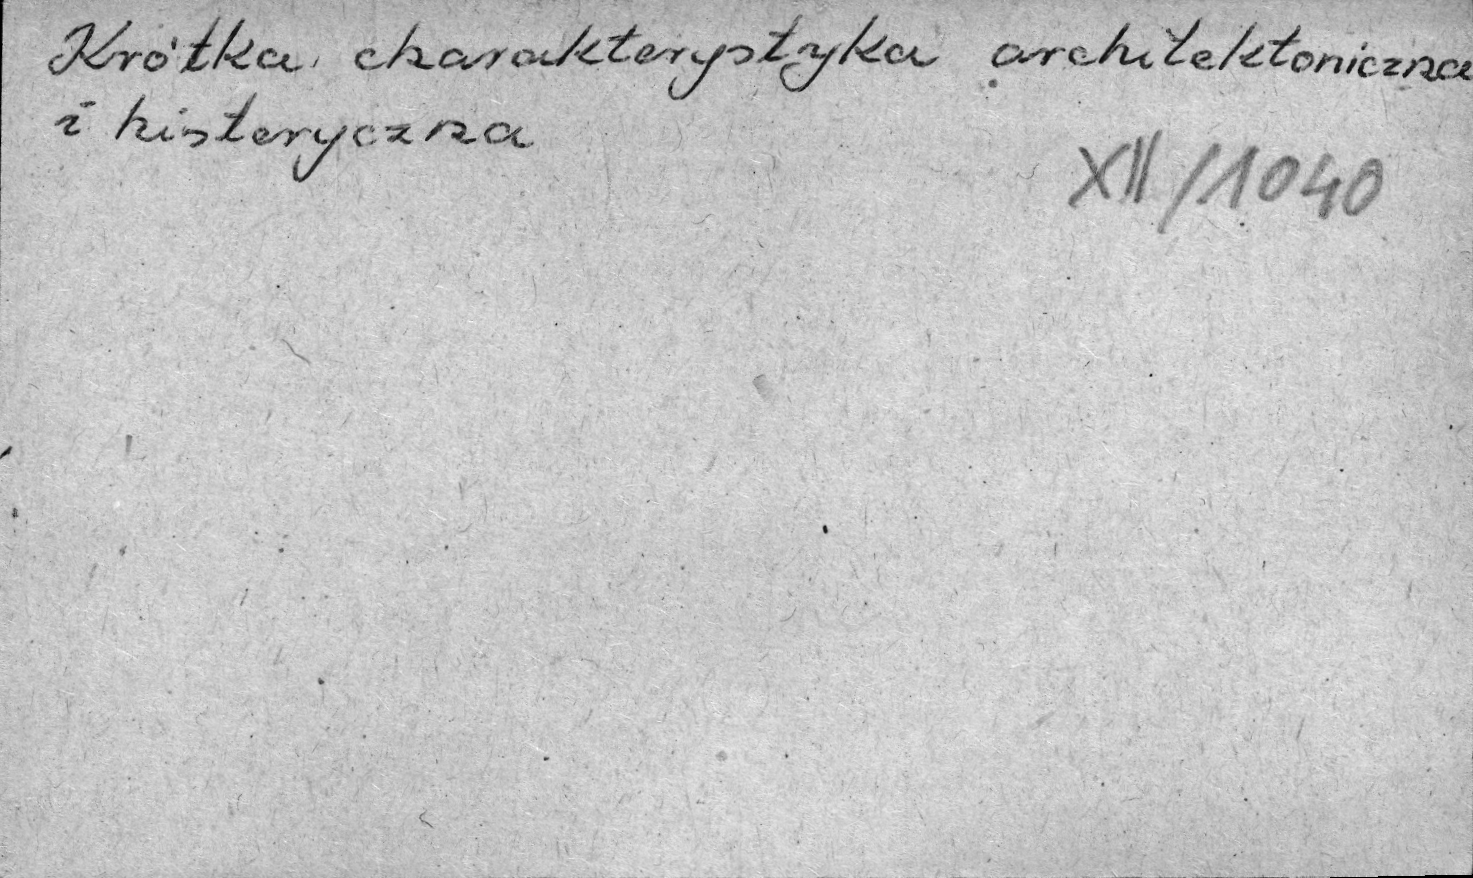 Krótka charakterystyka architektoniczna
i historyczna
XII/1040